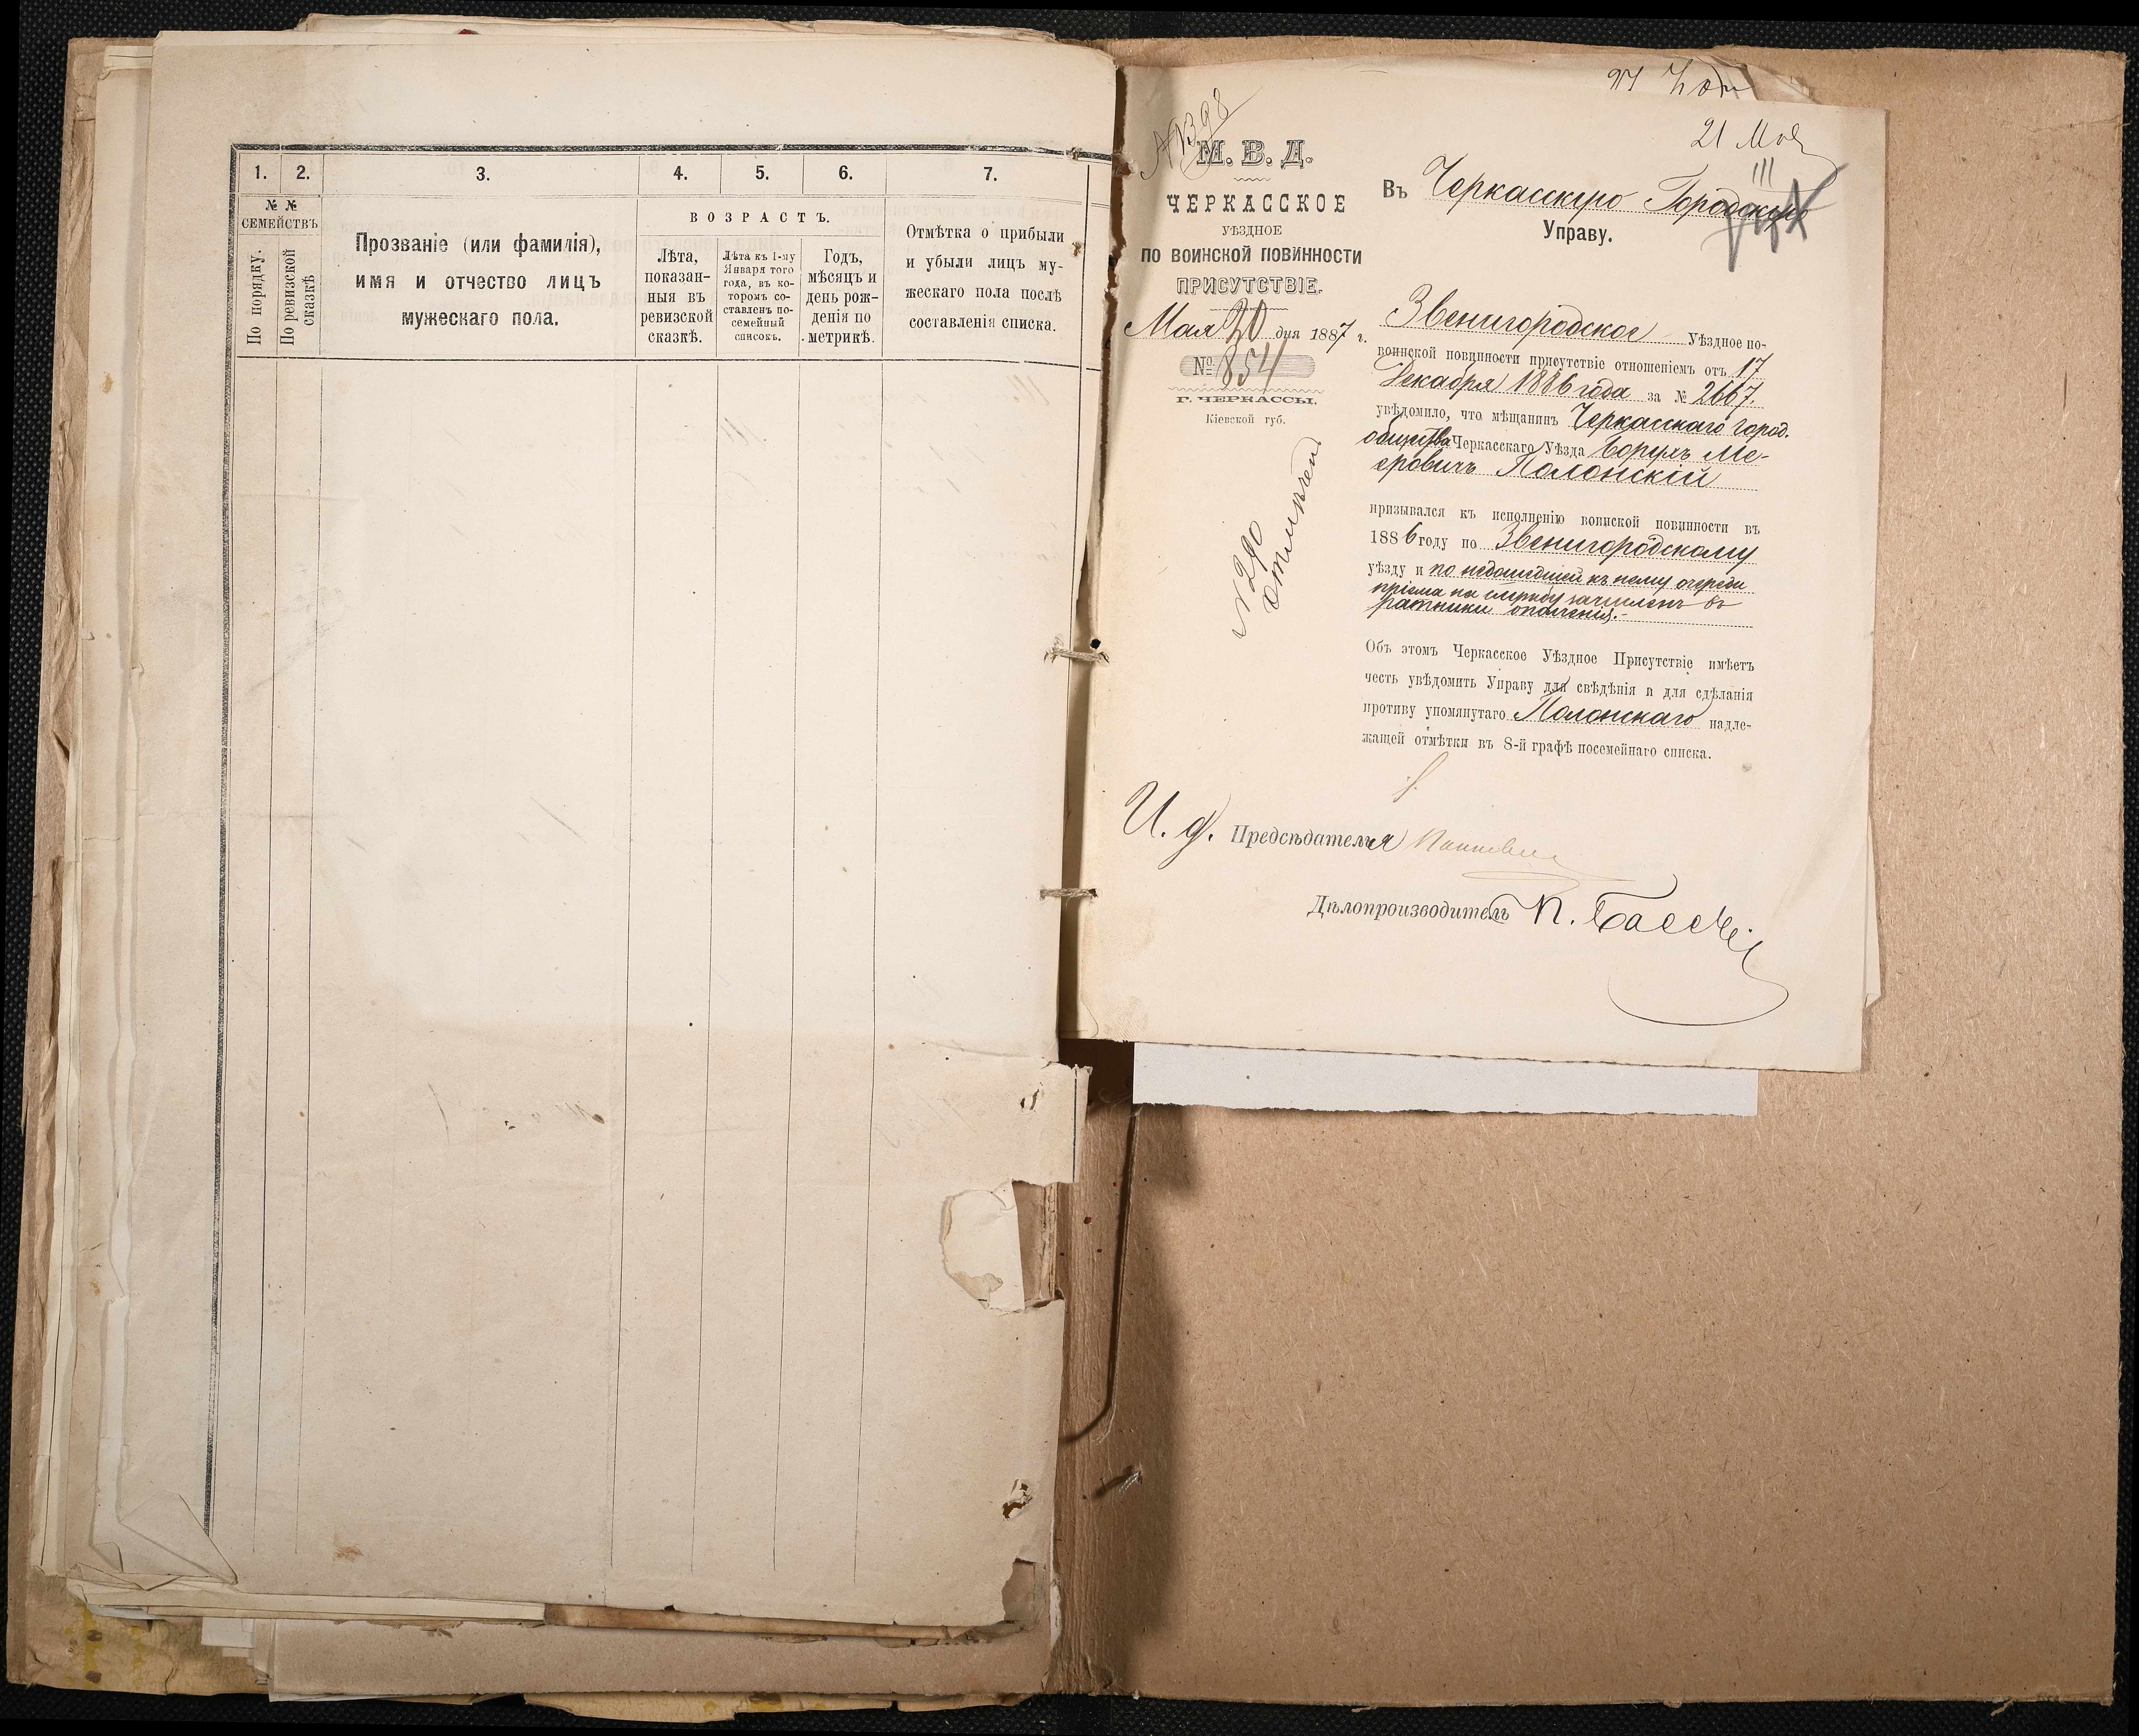 1. 2. 3. 4. 5. 6. 7.
№ №
СЕМЕЙСТВЪ
По порядку.
По ревизской
сказкѣ
Прозваніе (или фамилія),
имя и отчество лицъ
мужескаго пола.
ВОЗРАСТЪ.
Лѣта,
показан-
ныя въ
ревизской
сказкѣ.
Лѣта къ 1-му
Января того
года, въ ко-
торомъ со-
ставленъ по-
семейный
списокъ.
Годъ,
мѣсяцъ и
день рож-
денія по
метрикѣ.
Отмѣтка о прибыли
и убыли лицъ му-
жескаго пола послѣ
составленія списка.
21 Мая
III
М. В. Д.
ЧЕРКАССКОЕ
УѢЗДНОЕ
ПО ВОИНСКОЙ ПОВИННОСТИ
ПРИСУТСТВІЕ.
Мая 20 дня 1887 г.
№ 854
Г. ЧЕРКАССЫ.
Кіевской губ.
№ 290
Въ Черкасскую Городскую
Управу.
Звенигородское Уѣздное по-
воинской повинности присутствіе отношеніемъ отъ 17
Декабря 1886 года за № 2667.
увѣдомило, что мѣщанинъ Черкасскаго город.
общества Черкасскаго Уѣзда Борухъ Ме-
еровичъ Полонскій
призывался къ исполненію воинской повинности въ
1886 году по Звенигородскому
уѣзду и по недошедшей къ нему очереди
пріема на службу зачисленъ въ
ратники ополченія.
Объ этомъ Черкасское Уѣздное Присутствіе имѣетъ
честь увѣдомить Управу для свѣдѣнія и для сдѣланія
противу упомянутаго Полонскаго надле-
жащей отмѣтки въ 8-й графѣ посемейнаго списка.
И. д. Предсѣдателя
Дѣлопроизводитель